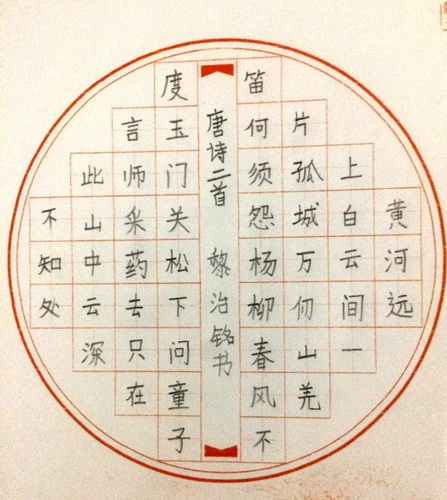 黄河远
上白云间一
片孤城万仞山羌
笛何须怨杨柳春风不
唐诗二首 黎治铭书
度玉门关松下问童子
言师采药去只在
此山中云深
不知处